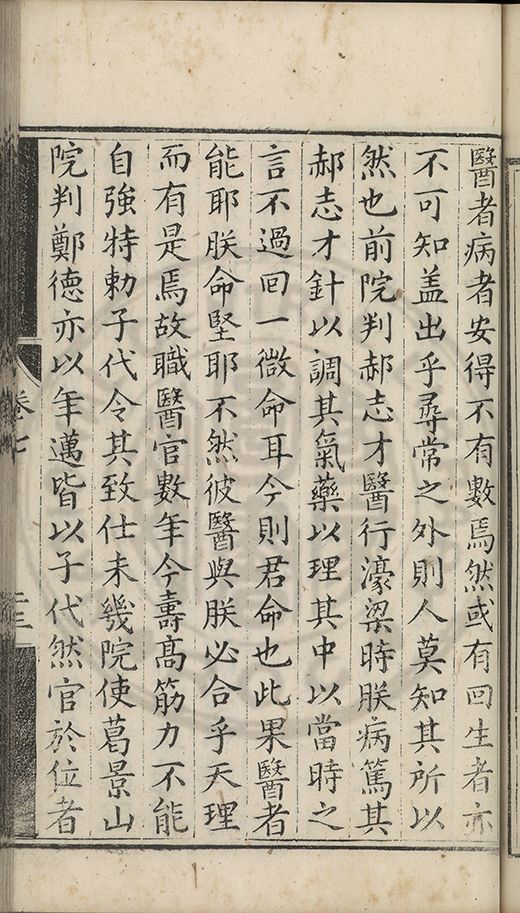 醫者病者安得不有數焉然或有回生者亦
不可知盖出乎尋常之外則人莫知其所以
然也前院判郝志才醫行濠梁時朕病篤其
郝志才針以調其氣藥以理其中以當時之
言不過回一微命耳今則君命也此果醫者
能耶朕命堅耶不然彼醫與朕必合乎天理
而有是焉故職醫官數年今壽高筋力不能
自強特勅子代令其致仕未幾院使葛景山
院判鄭德亦以年邁皆以子代然官於位者
卷七
二十三